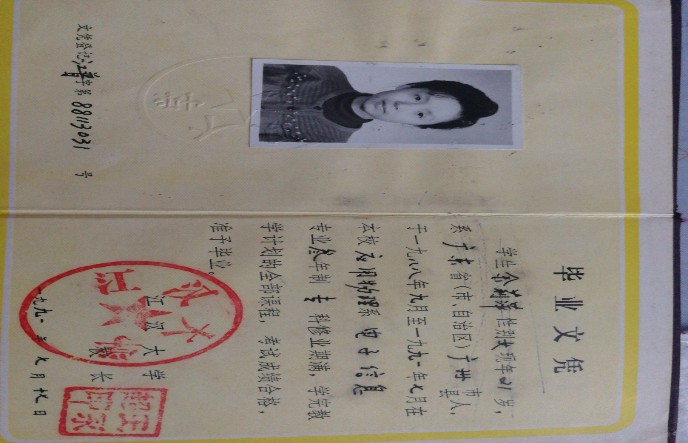 毕业文凭
学生 性别女现年21岁，
系广东省(市、自治区)广州市县人，
于一九八八年九月至一九九一年七月在
本校应用物理系电子信息
专业叁年制专科修业期满，学完教
学计划的全部课程，考试成绩合格，
准予毕业。
江汉大学
校长
一九九一年七月 日
文凭登记江普字第88113031号